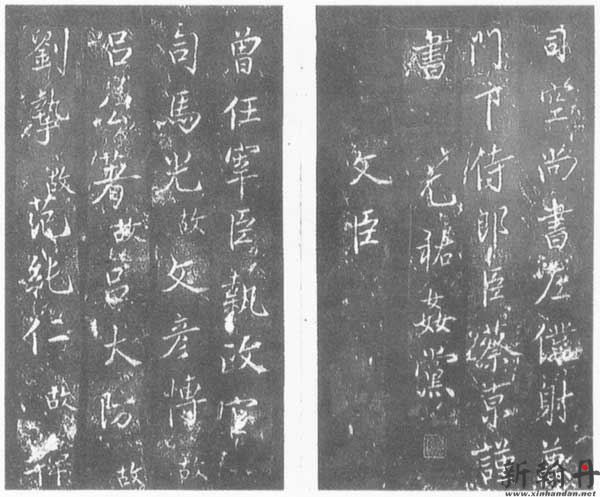 司空尚書左僕射兼
門下侍郎臣蔡京謹
書 元祐姦黨
文臣
曾任宰臣執政官
司馬光故文彥博故
呂公著故呂大防故
劉摯故范純仁故韓
新翰丹
www.xinhandan.net